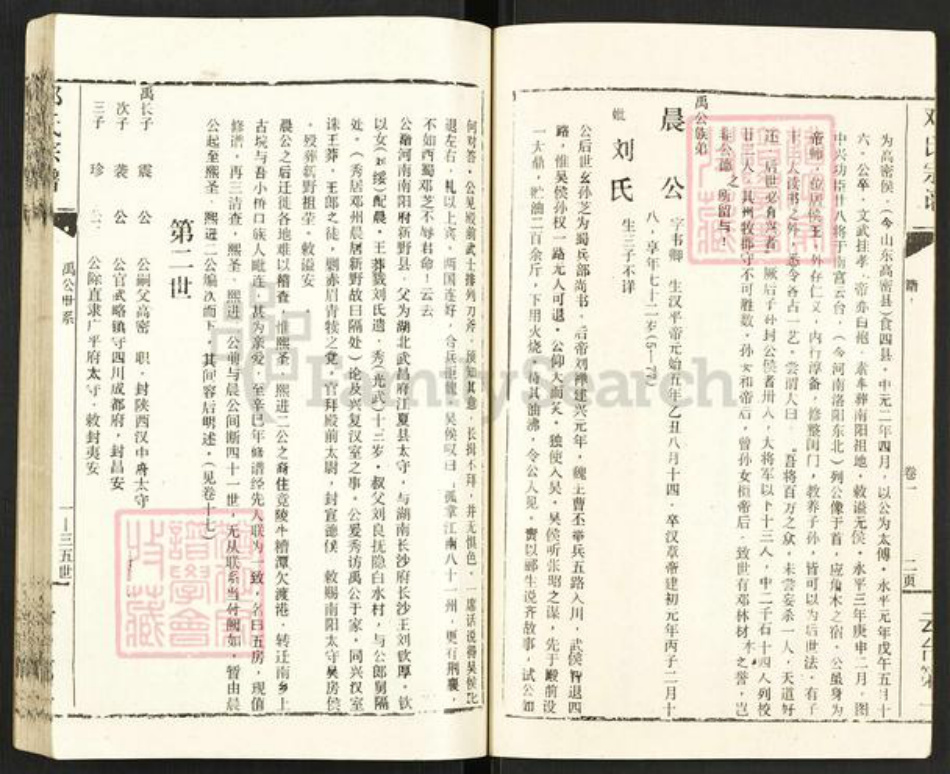 邓氏宗谱
卷一
二页
为高密侯．(今山东高密县)食四县．中元二年四月，以公为太傅．永平元年戊午五月十
六．公卒．文武挂孝．帝亦白袍．素车葬南阳祖地．敕谥元侯．永平三年庚申二月．图
中兴功臣廿八将于南宫云台．(今河南洛阳东北)列公像于首，应角木之宿．公虽身为
帝师，位居侯王．外存仁义，内行淳备，修整闺门，教养子孙，皆可以为后世法．有子
十三人读书之外，悉令各占一艺．尝谓人曰：吾将百万之众，未尝妄杀一人，天道好
还．后世必有兴者．厥后子孙封公侯者卅八，大将军以下十三人，中二千石十四人列校
廿二人，其州牧郡守不可胜数．孙女和帝后，曾孙女桓帝后．致世有邓林材木之誉，岂
非公德之所留与！
禹公族弟
晨公
字书卿 生汉平帝元始五年乙丑八月十四．卒汉章帝建初元年丙子二月十
八，享年七十二岁(5—77)
妣 刘氏
生三子不详
公后世玄孙芝为蜀兵部尚书．后帝刘禅建兴元年，魏主曹丕举兵五路入川，武侯智退四
路，惟吴侯孙权一路无人可退．公仰天而笑．独使入吴．吴侯听张昭之谋，先于殿前设
一大鼎，贮油二百余斤，下用火烧．待其油沸，令公入见．责以郦生说齐故事，试公如
何对答．公见殿前武士排列刀斧．预知其意．长揖不拜，并无惧色．一席话说得吴侯叱
退左右，礼以上宾．两国连好，合兵讵魏．吴侯叹曰：孤掌江南八十一州，更有荆襄，
不如西蜀邓芝不辱君命！云云
公籍河南南阳府新野县．父为湖北武昌府江夏县太守，与湖南长沙府长沙王刘钦厚．钦
以女(刘绥)配晨．王莽戮刘氏遗．秀(光武)十三岁．叔父刘良抚隐白水村，与公郎舅隔
处．(秀居邓州晨居新野故曰隔处)论及兴复汉室之事．公爱秀访禹公于家．同兴汉室
诛王莽．王郎之徒，剿赤眉青犊之党．官拜殿前太尉，封宣德侯 敕赐南阳太守吴房侯
．殁葬新野祖茔．敕谥安
晨公之后迁徙各地难以稽查．惟熙圣．熙进二公之裔住竟陵牛槽潭欠渡港．转迁南乡上
古垸与吾小桥口族人毗连．甚为亲爱．至辛巳年修谱经先人联为一致，名曰五房，现值
修谱．再三清查，熙圣 熙进 公前与晨公间断四十一世，无从联系当付阙如．暂由晨
公起至熙圣．熙进二公编次而下．其间容后明述．(见卷十七)
第二世
禹长子 震 公
公嗣父高密 职．封陕西汉中府太守
次子 袭 公
公官武略镇守四川成都府，封昌安
三子 珍 公
公除直隶广平府太守．敕封夷安
禹公世系
一—三五世